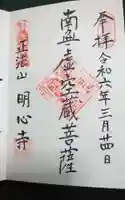 奉拝 令和六年三月廿四日
南無虚空蔵菩薩
正濡山 明心寺